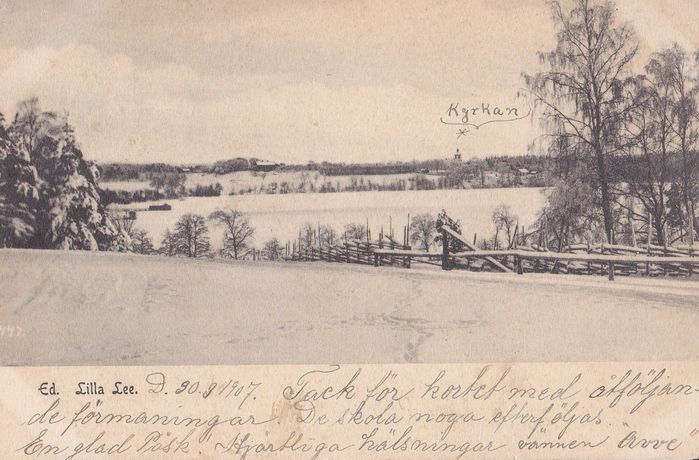 Kyrkan
Ed. Lilla Lee. D. 30.3 1907. Tack för kortet med åtföljan-
de förmaningar. De skola noga efterföljas.
En glad Påsk. Hjärtliga hälsningar vännen "Avve"